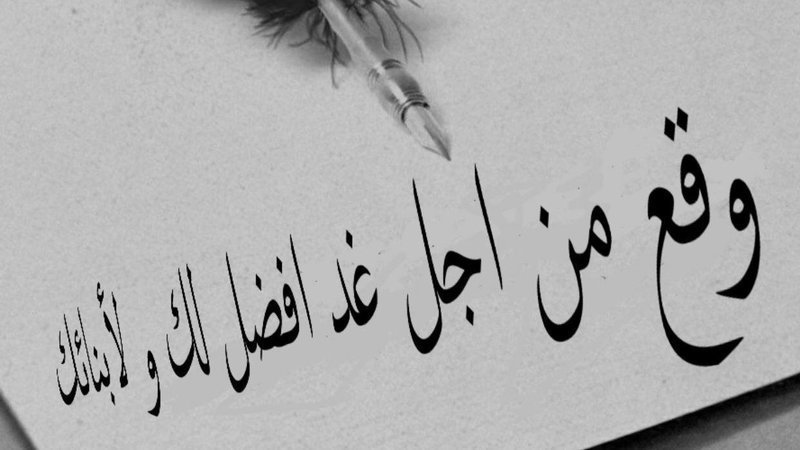 وقع من اجل غد افضل لك و لأبنائك